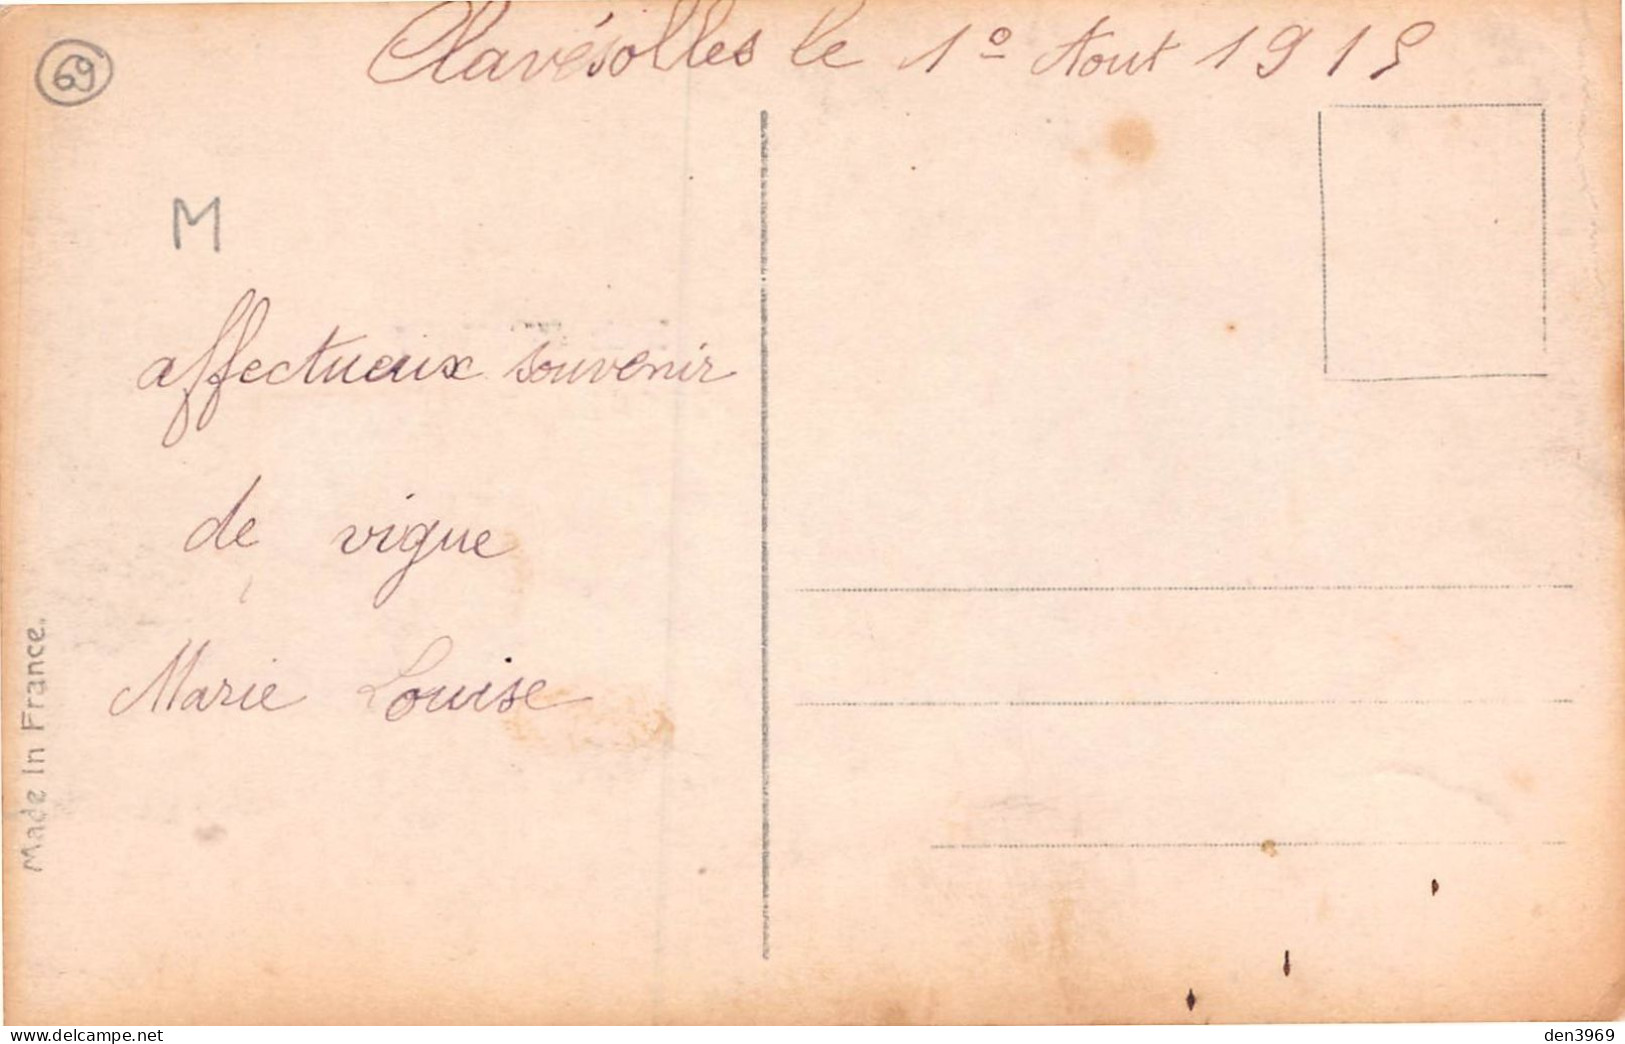 Clavésolles le 1º Aout 1915
69
M
affectueux souvenir
de vigue
Marie Louise
Made In France.
www.delcampe.net
den3969